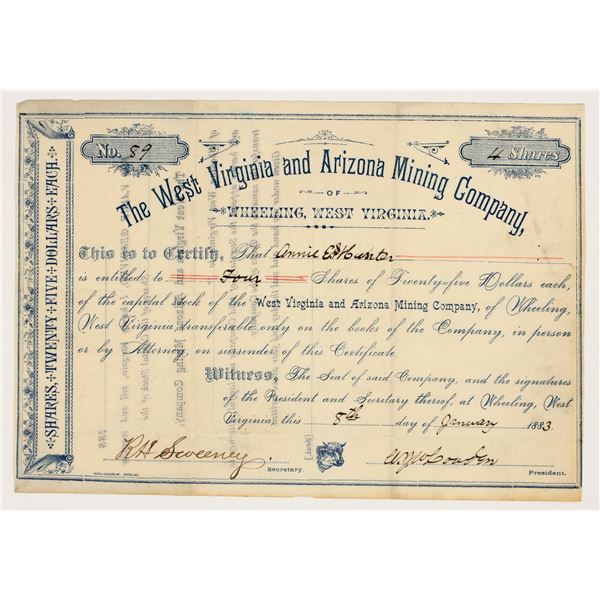 No. 89
4 Shares
The West Virginia and Arizona Mining Company,
OF
WHEELING, WEST VIRGINIA.
This is to Certify, That Annie E. Hunter
is entitled to Four Shares of Twenty-five Dollars each,
of the capital stock of the West Virginia and Arizona Mining Company, of Wheeling,
West Virginia transferable only on the books of the Company, in person
or by Attorney, on surrender of this Certificate.
Witness, The Seal of said Company, and the signatures
of the President and Secretary thereof, at Wheeling, West
Virginia this 8th day of January 1883.
R H Sweeney
Secretary.
[Seal]
President.
SHARES TWENTY FIVE DOLLARS EACH.